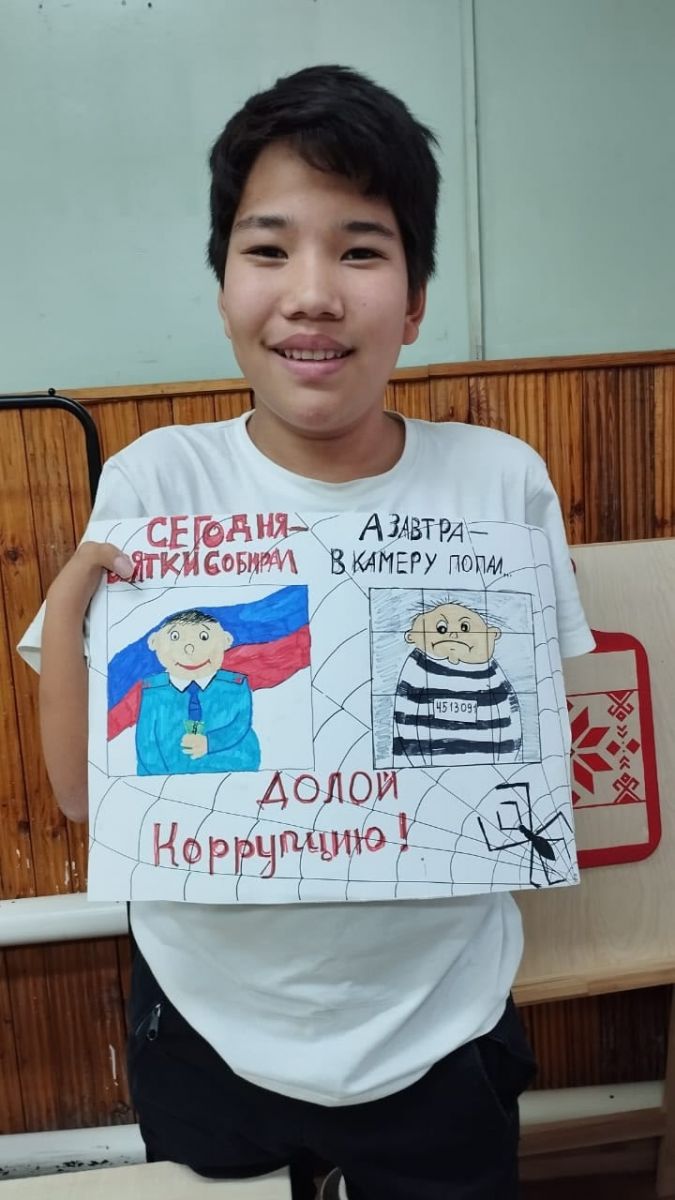 СЕГОДНЯ–
ВЗЯТКИ СОБИРАЛ
А ЗАВТРА –
В КАМЕРУ ПОПАЛ...
4513091
ДОЛОЙ
Коррупцию!